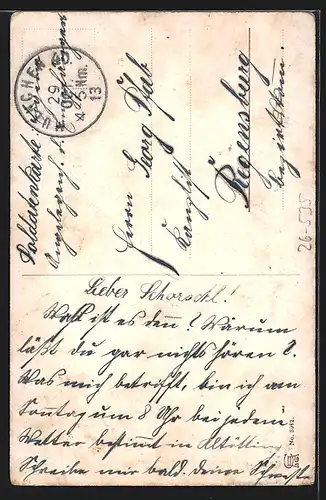 MÜNCHEN
29
4-5 Nm.
13
Soldatenkarte
Herrn Georg Pfab
Kanzlist
Regensburg
Bezirksam.
26-535
Lieber Schorschl!
Was ist es denn? Warum
läßt du gar nichts hören?
Was mich betrifft, bin ich am
Sonntag um 8 Uhr bei jedem
Wetter bestimmt in Altötting
Schreibe mir bald. deine
No.